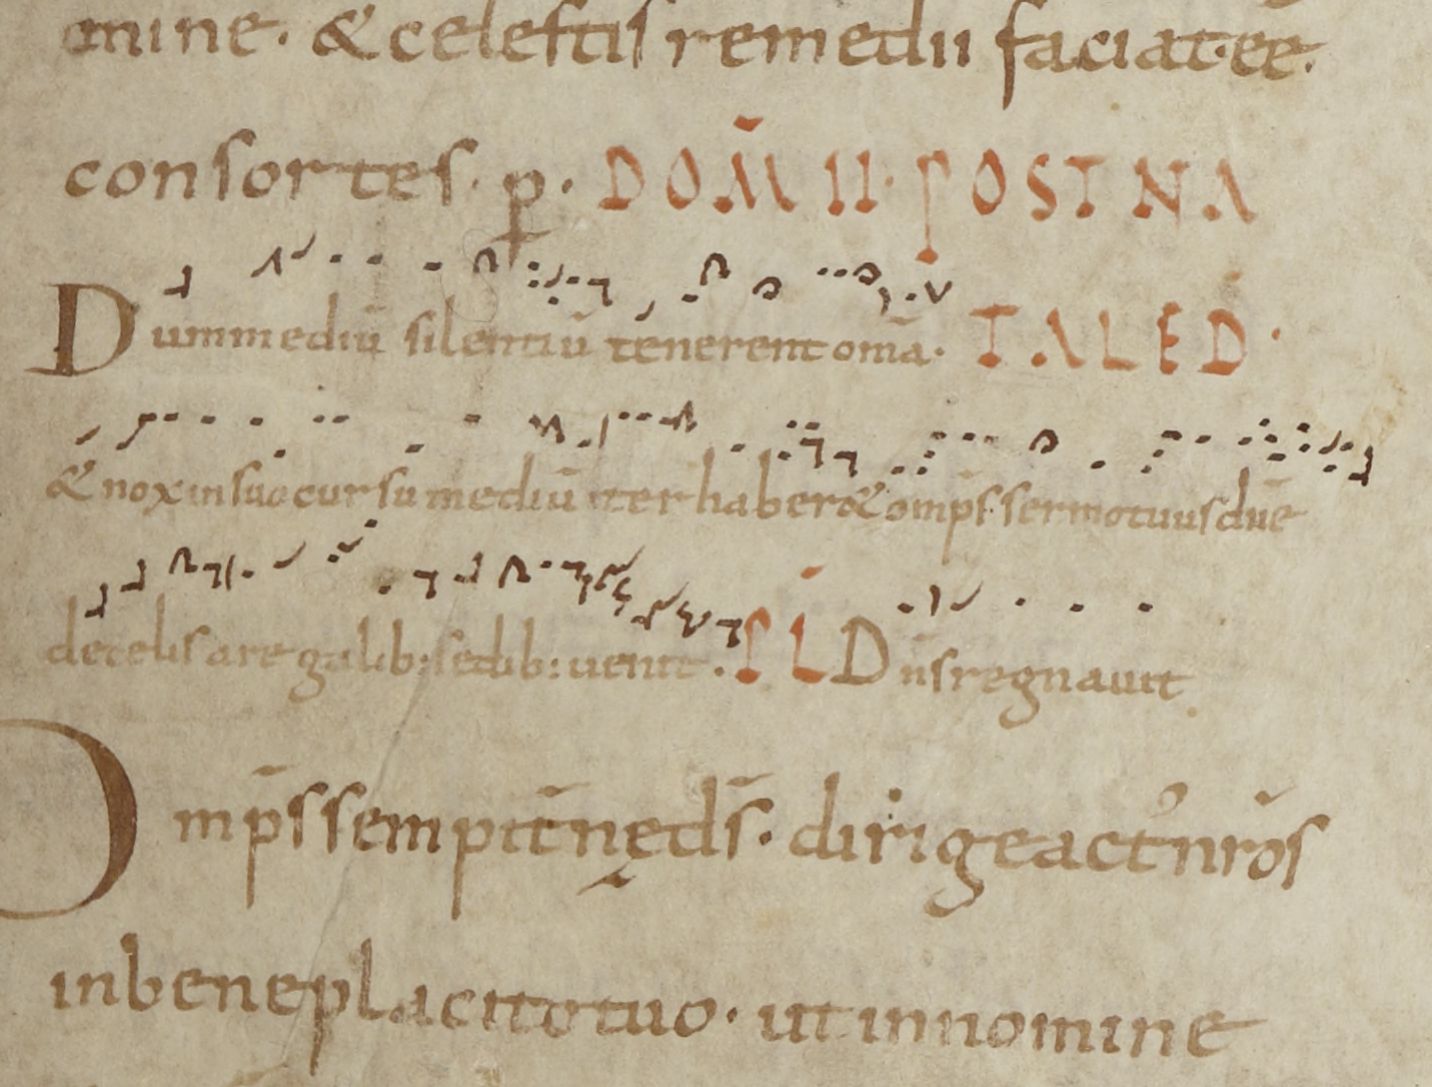 omine. & celestis remedii faciat eē.
consortes. p. DOM̄ II. POST NA
Dum mediū silentiū tenerent om̄a. TALE D̄.
& nox in suo cursu mediū iter haber& omp̄s sermo tuus dn̄e
de celis a regalib: sedib: uenit. PS̄L Dn̄s regnauit
Omp̄s sempit̄nę ds̄. dirige act' nr̄os
in beneplacito tuo. ut in nomine